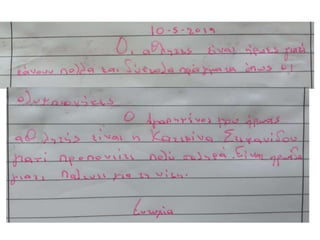 10-5-2019
Οι αθλητές είναι ήρωες γιατί
κάνουν πολλά και δύσκολα πράγματα όπως οι
ολυμπιονίκες
Ο αγαπημένος μου ήρωας
αθλητής είναι η Κατερίνα Στεφανίδου
γιατί προπονιέτε πολύ σκληρά. Είναι ηρωίδα
γιατι παλευει για τη νίκη.
Ευτυχία